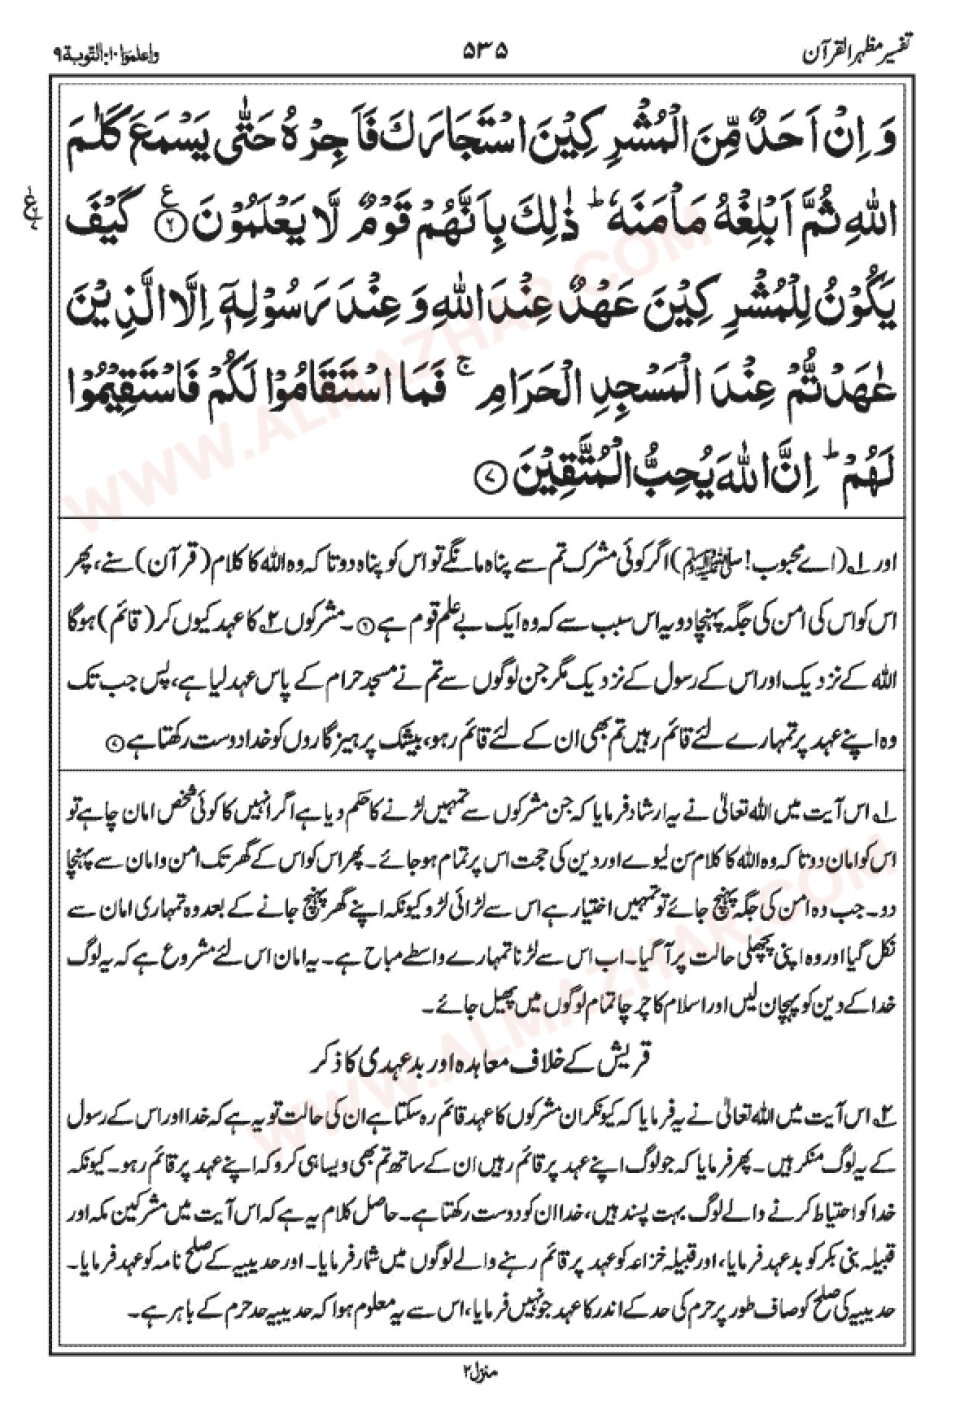 تفسیر مظہر القرآن
۵۳۵
واعلموا ۱۰: التوبة ۹
وَاِنْ اَحَدٌ مِّنَ الْمُشْرِكِيْنَ اسْتَجَارَكَ فَاَجِرْهُ حَتّٰى يَسْمَعَ كَلٰمَ
اللّٰهِ ثُمَّ اَبْلِغْهُ مَاْمَنَهٗ ؕ ذٰلِكَ بِاَنَّهُمْ قَوْمٌ لَّا يَعْلَمُوْنَ ۶ ع كَيْفَ
يَكُوْنُ لِلْمُشْرِكِيْنَ عَهْدٌ عِنْدَ اللّٰهِ وَ عِنْدَ رَسُوْلِهٖٓ اِلَّا الَّذِيْنَ
عٰهَدْتُّمْ عِنْدَ الْمَسْجِدِ الْحَرَامِ ۚ فَمَا اسْتَقَامُوْا لَكُمْ فَاسْتَقِيْمُوْا
لَهُمْ ؕ اِنَّ اللّٰهَ يُحِبُّ الْمُتَّقِيْنَ ۷
اور ۱؎ (اے محبوب! ﷺ) اگر کوئی مشرک تم سے پناہ مانگے تو اس کو پناہ دو تا کہ وہ اللہ کا کلام (قرآن) سنے، پھر
اس کو اس کی امن کی جگہ پہنچا دو یہ اس سبب سے کہ وہ ایک بے علم قوم ہے ۶۔ مشرکوں ۲؎ کا عہد کیوں کر (قائم) ہوگا
اللہ کے نزدیک اور اس کے رسول کے نزدیک مگر جن لوگوں سے تم نے مسجد حرام کے پاس عہد لیا ہے، پس جب تک
وہ اپنے عہد پر تمہارے لئے قائم رہیں تم بھی ان کے لئے قائم رہو، بیشک پرہیزگاروں کو خدا دوست رکھتا ہے ۷
۱؎ اس آیت میں اللہ تعالیٰ نے یہ ارشاد فرمایا کہ جن مشرکوں سے تمہیں لڑنے کا حکم دیا ہے اگر انہیں کا کوئی شخص امان چاہے تو
اس کو امان دو تا کہ وہ اللہ کا کلام سن لیوے اور دین کی حجت اس پر تمام ہو جائے۔ پھر اس کو اس کے گھر تک امن و امان سے پہنچا
دو۔ جب وہ امن کی جگہ پہنچ جائے تو تمہیں اختیار ہے اس سے لڑائی لڑو کیونکہ اپنے گھر پہنچ جانے کے بعد وہ تمہاری امان سے
نکل گیا اور وہ اپنی پچھلی حالت پر آ گیا۔ اب اس سے لڑنا تمہارے واسطے مباح ہے۔ یہ امان اس لئے مشروع ہے کہ یہ لوگ
خدا کے دین کو پہچان لیں اور اسلام کا چرچا تمام لوگوں میں پھیل جائے۔
قریش کے خلاف معاہدہ اور بدعہدی کا ذکر
۲؎ اس آیت میں اللہ تعالیٰ نے یہ فرمایا کہ کیونکر ان مشرکوں کا عہد قائم رہ سکتا ہے ان کی حالت تو یہ ہے کہ خدا اور اس کے رسول
کے یہ لوگ منکر ہیں۔ پھر فرمایا کہ جو لوگ اپنے عہد پر قائم رہیں ان کے ساتھ تم بھی ویسا ہی کرو کہ اپنے عہد پر قائم رہو۔ کیونکہ
خدا کو احتیاط کرنے والے لوگ بہت پسند ہیں، خدا ان کو دوست رکھتا ہے۔ حاصل کلام یہ ہے کہ اس آیت میں مشرکین مکہ اور
قبیلہ بنی بکر کو بدعہد فرمایا، اور قبیلہ خزاعہ کو عہد پر قائم رہنے والے لوگوں میں شمار فرمایا۔ اور حدیبیہ کے صلح نامہ کو عہد فرمایا۔
حدیبیہ کی صلح کو صاف طور پر حرم کی حد کے اندر کا عہد جو نہیں فرمایا، اس سے یہ معلوم ہوا کہ حدیبیہ حد حرم کے باہر ہے۔
منزل ۲
WWW.ALMAZHAR.COM
WWW.ALMAZHAR.COM